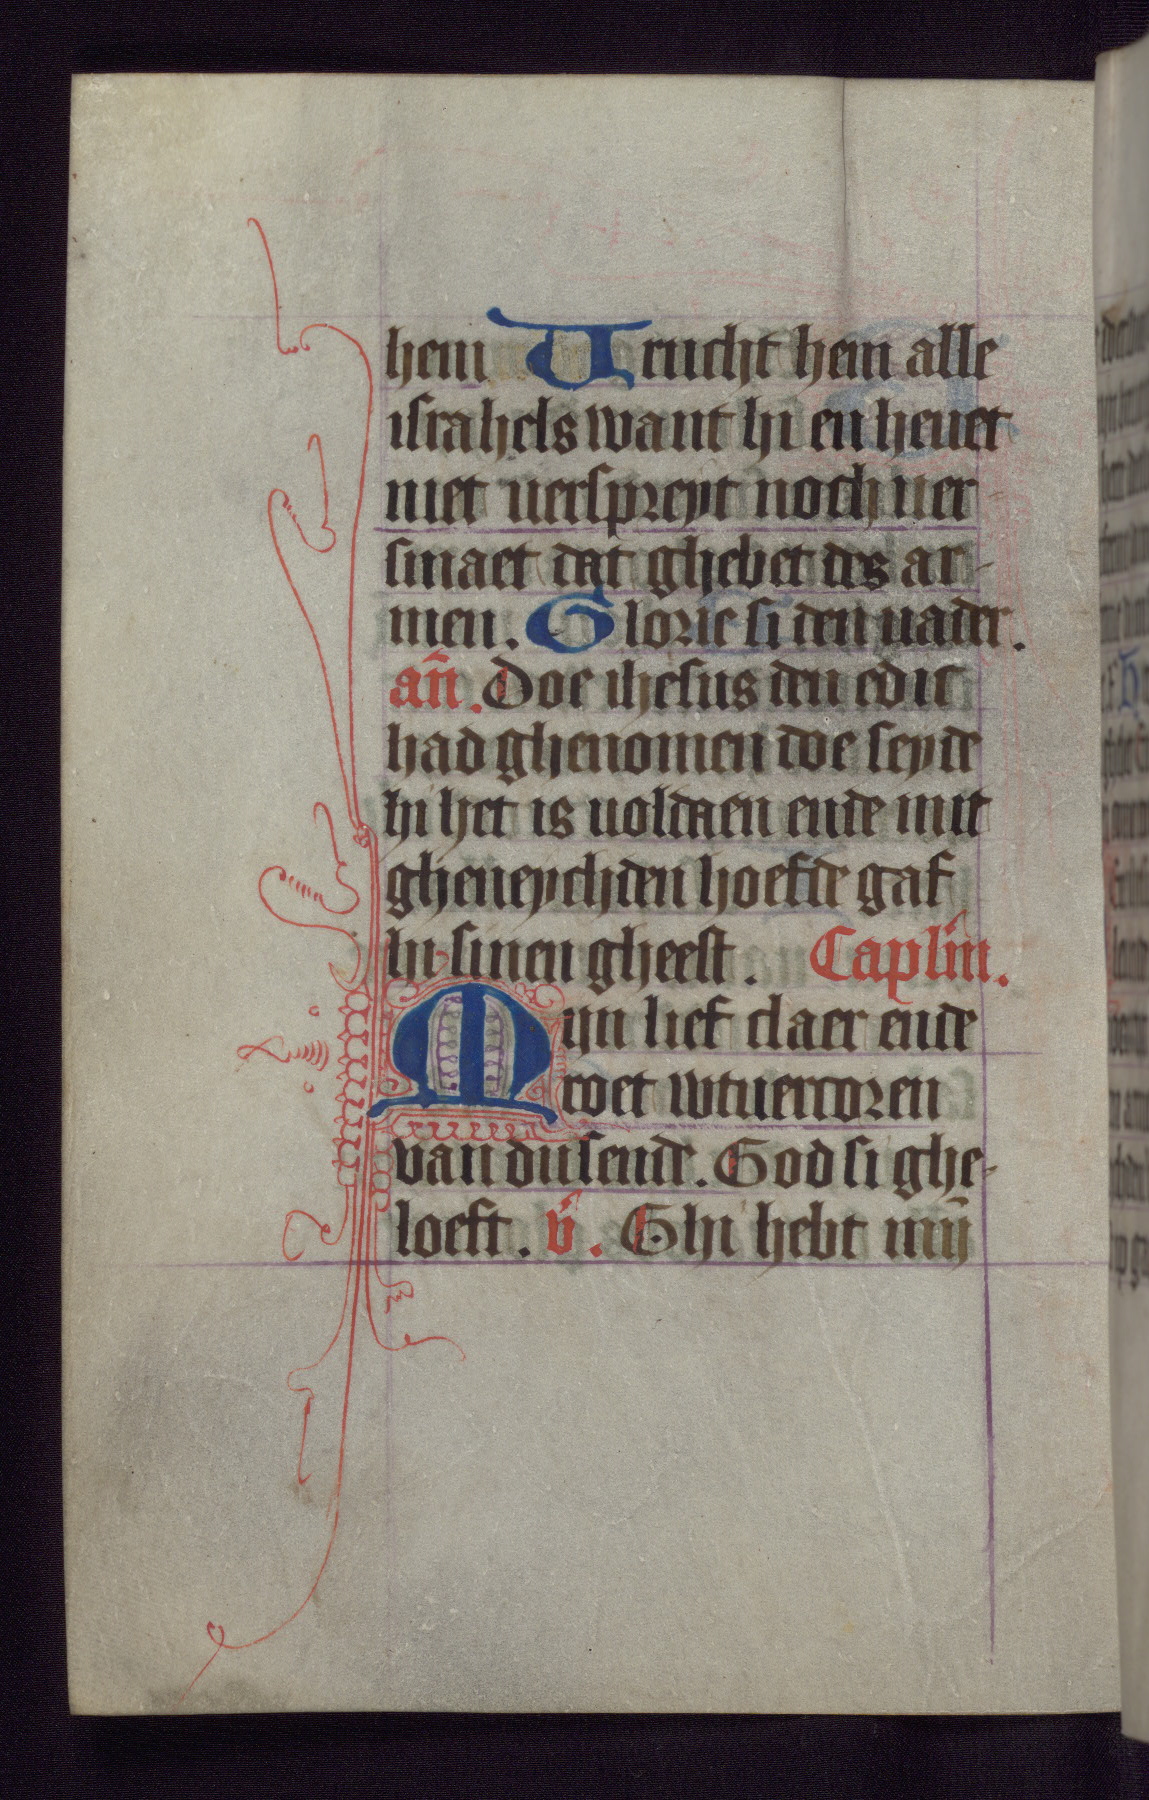 hem Urucht hem alle
israhels want hi en heuet
niet uerspreyt noch uer
smaet dat ghebet des ar-
men. Glorie si den uader.
an̄. Doe ihesus den edic
had ghenomen doe seyde
hi het is uoldaen ende mit
gheneychden hoefde gaf
hi sinen gheest. Caplm̄.
Mijn lief claer ende
roet wtuercoren
van dusende. God si ghe-
loeft. v̄. Ghi hebt mij̄